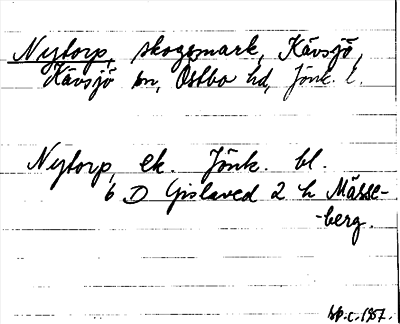 Nytorp, skogsmark, Kävsjö,
Kävsjö sn, Östbo hd, Jönk. l.
Nytorp, ek. Jönk. bl.
6 D Gislaved 2 h Mässe-
-berg.
bp.c. 1957.